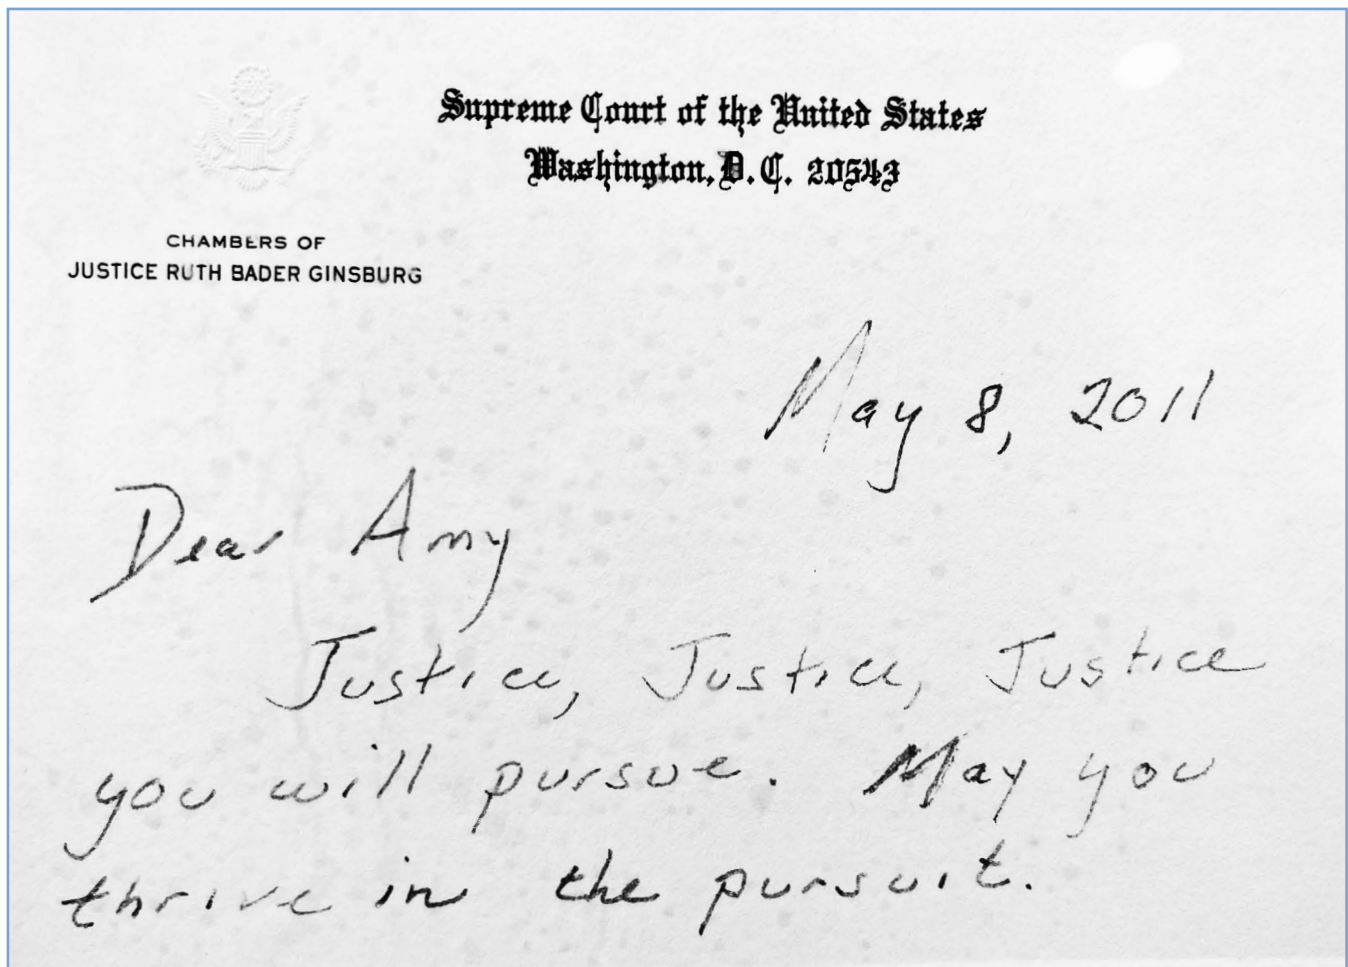 Supreme Court of the United States
Washington, D.C. 20543
CHAMBERS OF
JUSTICE RUTH BADER GINSBURG
May 8, 2011
Dear Amy
Justice, Justice, Justice
you will pursue. May you
thrive in the pursuit.